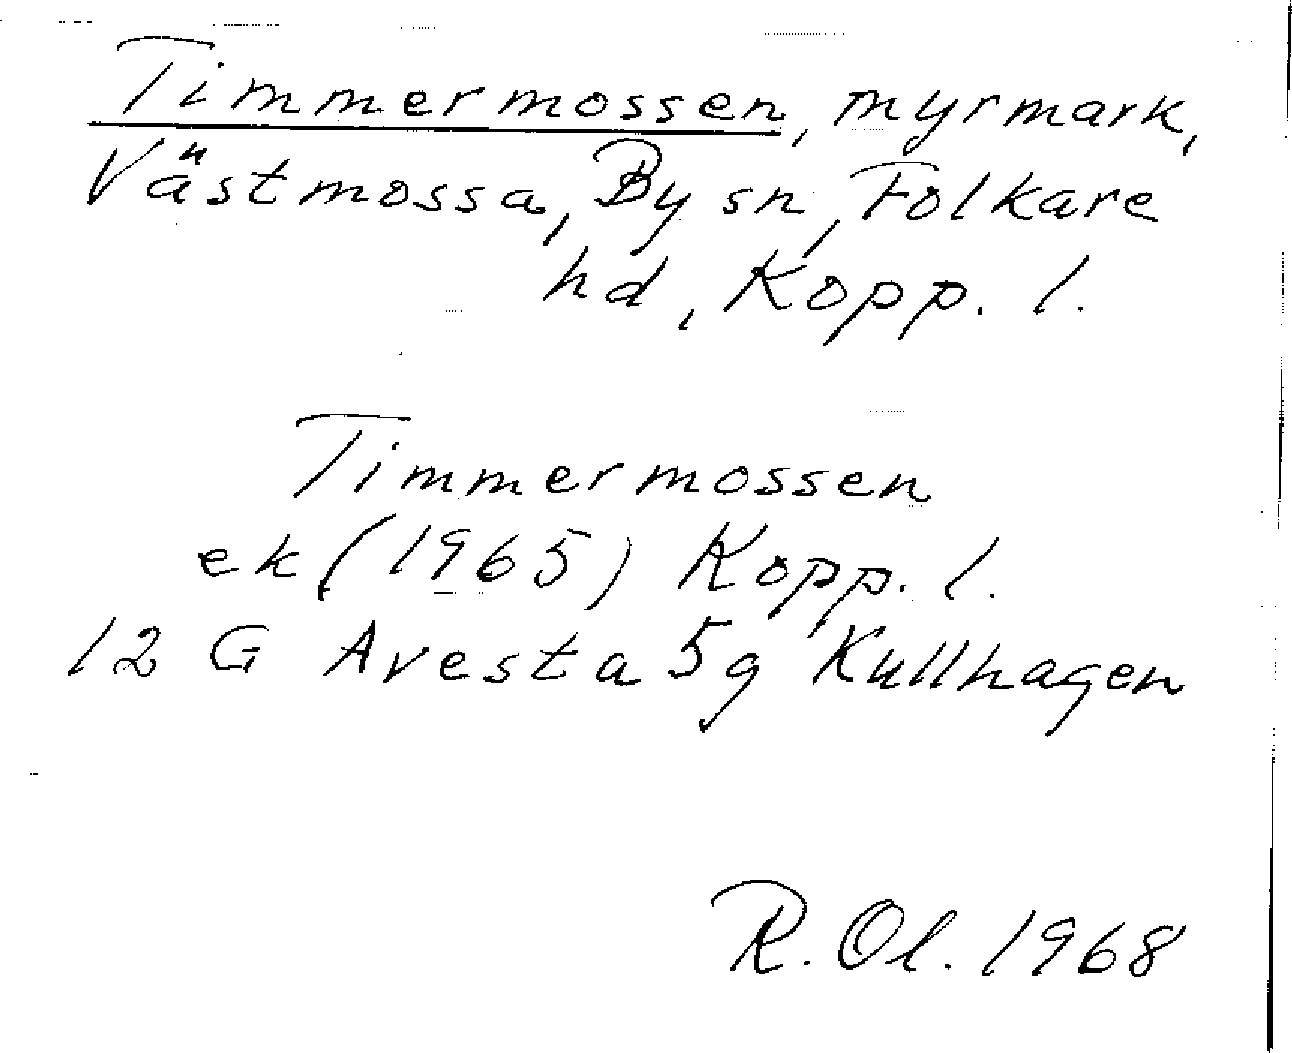 Timmermossen, myrmark,
Västmossa, By sn, Folkare
hd, Kopp. l.
Timmermossen
ek (1965) Kopp. l.
12 G Avesta 5g Kullhagen
R. Ol. 1968